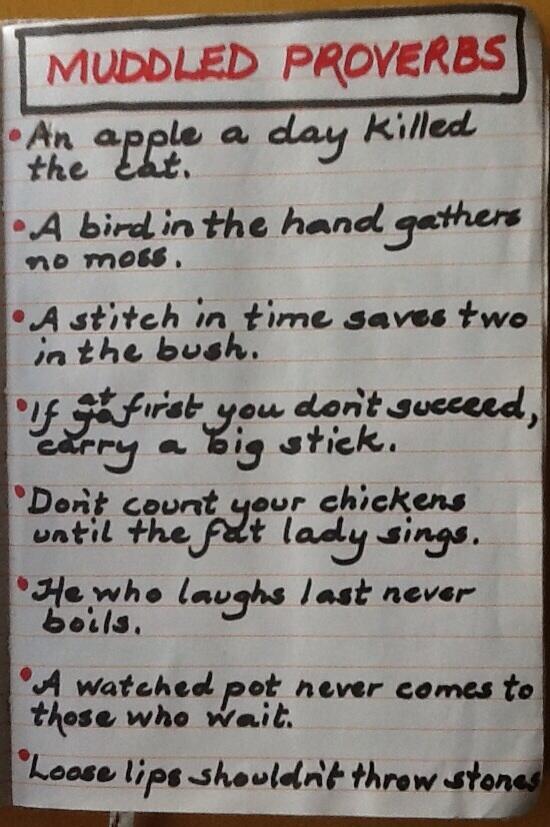 MUDDLED PROVERBS
• An apple a day killed
the cat.
• A bird in the hand gathers
no moss.
• A stitch in time saves two
in the bush.
• If at first you don't succeed,
carry a big stick.
• Don't count your chickens
until the fat lady sings.
• He who laughs last never
boils.
• A watched pot never comes to
those who wait.
• Loose lips shouldn't throw stones